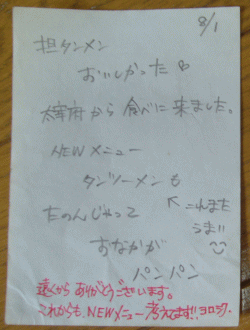 8/1
担タンメン
おいしかった♡
太宰府から食べに来ました。
NEWメニュー
タンツーメンも
たのんじゃって
↖これまた
うま!!
おなかが
パンパン
遠くからありがとうございます。
これからも、NEWメニュー考えます!!ヨロシク。